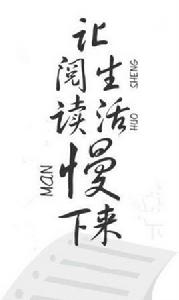 让生活
SHENG
HUO
阅读
慢
MAN
下来